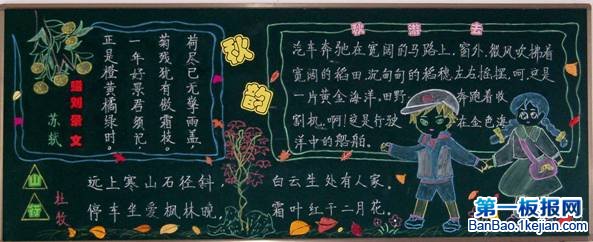 赠刘景文
苏轼
荷尽已无擎雨盖,
菊残犹有傲霜枝。
一年好景君须记
正是橙黄橘绿时。
秋韵
秋游去
汽车奔驰在宽阔的马路上,窗外,微风吹拂着
宽阔的稻田,沉甸甸的稻穗左右摇摆,呵,这是
一片黄金海洋,田野 奔跑着收
割机,啊!这是行驶 在金色海
洋中的船舶。
山行
杜牧
远上寒山石径斜, 白云生处有人家。
停车坐爱枫林晚, 霜叶红于二月花。
第一板报网
BanBao.1kejian.com